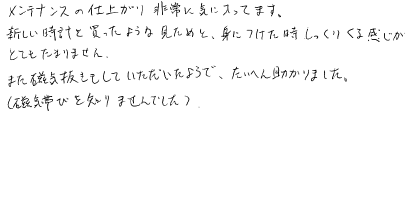 メンテナンスの仕上がり非常に気に入ってます。
新しい時計を買ったような見ためと、身につけた時しっくりくる感じが
とてもたまりません。
また磁気抜きもしていただいたようで、たいへん助かりました。
(磁気帯びを知りませんでした)